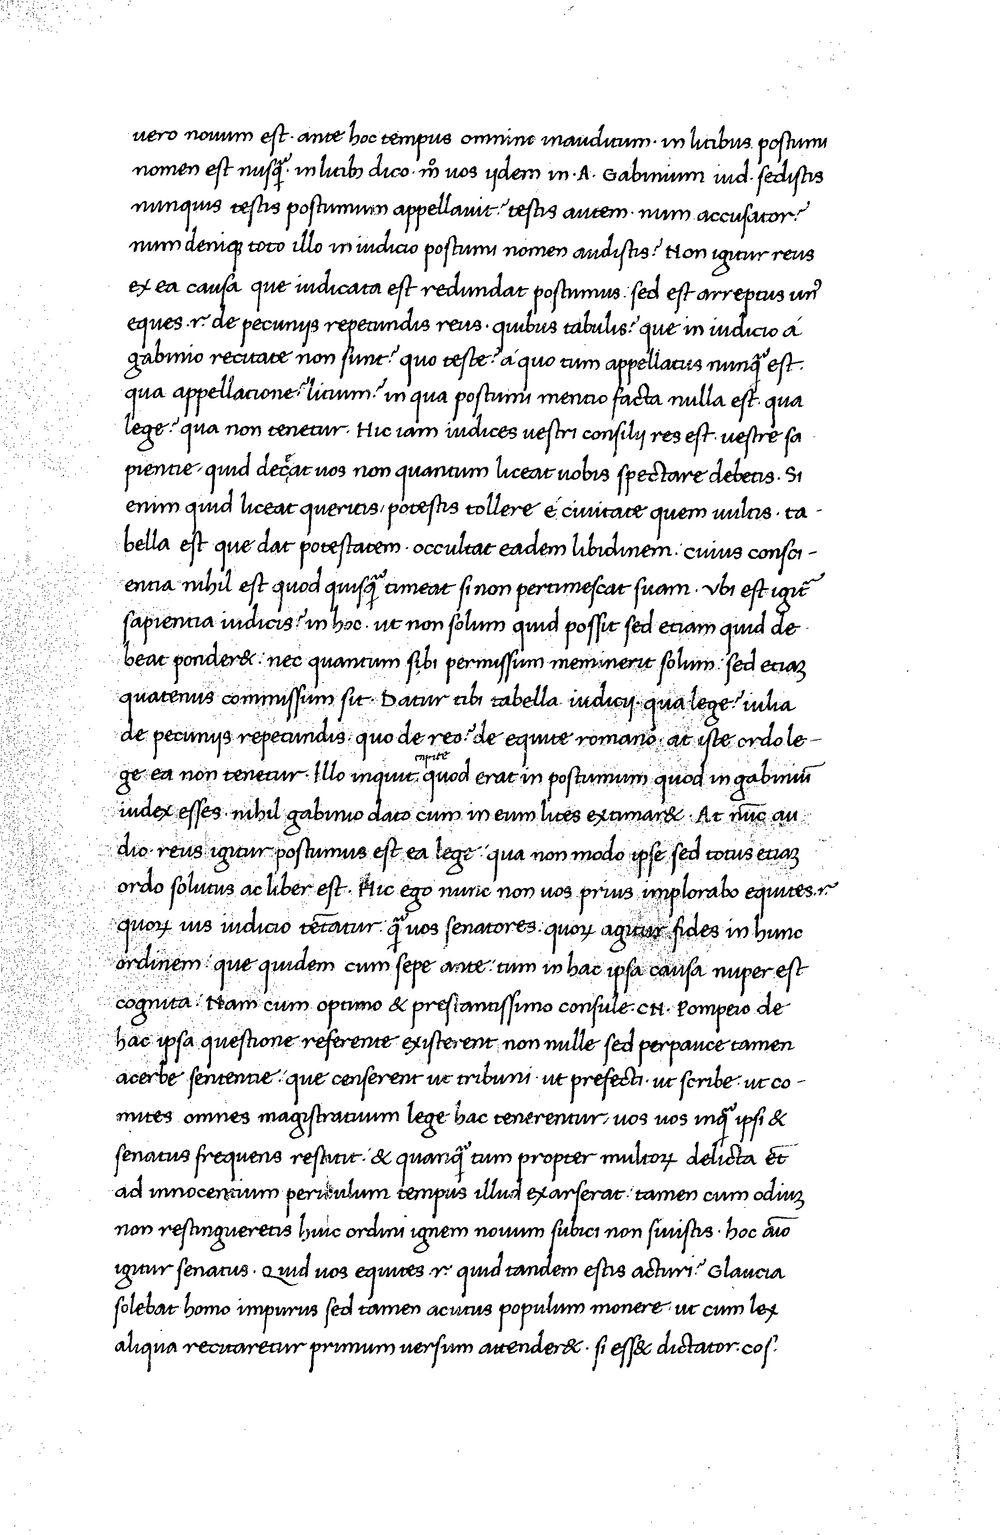 uero nouum est· ante hoc tempus omnino inauditum· in litibus postumi
nomen est nusq̃· in litib; dico· m̊ uos ijdem in·A· Gabinium iud· sedistis
nunquis testis postumum appellauit? testis autem· num accusator?
num deniq; toto illo in iudicio postumi nomen audistis? Non igitur reus
ex ea causa que iudicata est redundat postumus· sed est arreptus un᷒
eques·r̃· de pecunijs repetundis reus· quibus tabulis? que in iudicio á
gabinio recitate non sunt? quo teste? á quo tum appellatus nunq̃ est·
qua appellatione? litium? in qua postumi mentio facta nulla est· qua
lege? qua non tenetur· Hic iam iudices uestri consilij res est· uestre sa
pientie, quid deceat uos non quantum liceat uobis spectare debetis· Si
enim quid liceat queritis, potestis tollere é ciuitate quem uultis· ta-
bella est que dat potestatem· occultat eadem libidinem· cuius consci-
entia nihil est quod quisq̃ timeat si non pertimescat suam· Vbi est igit̃
sapientia iudicis? in hoc· ut non solum quid possit sed etiam quid de
beat ponder&: nec quantum sibi permissum meminerit solum: sed etiaʒ
quatenus commissum sit· Datur tibi tabella iudicij· qua lege? iulia
de pecunijs repetundis· quo de reo? de equite romano· at iste ordo le-
ge ea non tenetur· Illo inquit capite quod erat in postumum quod in gabiniū
iudex esses· nihil gabinio dato cum in eum lites extimar&· At nūc au
dio· reus igitur postumus est ea lege· qua non modo ipse sed totus etiaʒ
ordo solutus ac liber est· Hic ego nunc non uos prius implorabo equites·r̃
quoꝝ ius iudicio tētatur· q̃ uos senatores· quoꝝ agitur fides in hunc
ordinem: que quidem cum sepe ante: tum in hac ipsa causa nuper est
cognita: Nam cum optimo & prestantissimo consule·CN· Pompeio de
hac ipsa questione referente existerent non nulle sed perpauce tamen
acerbe sententie: que censerent ut tribuni· ut prefecti· ut scribe· ut co-
mites omnes magistratuum lege hac tenerentur, uos uos inq̃ ipsi &
senatus frequens restitit: & quanq̃ tum propter multoꝝ delicta et̄
ad innocentium periculum tempus illud exarserat: tamen cum odiuʒ
non restingueretis huic ordini ignem nouum subici non siuistis· hoc aīo
igitur senatus· Quid uos equites·r̃· quid tandem estis acturi? Glaucia
solebat homo impurus sed tamen acutus populum monere· ut cum lex
aliqua recitaretur primum uersum attender&· si ess& dictator·cos·